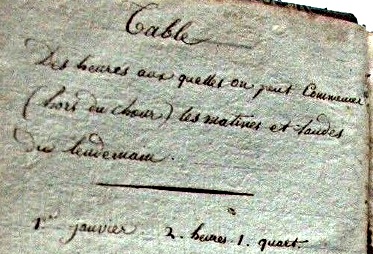 Table
Des heures aux quelles on peut Commencer
(hors du choeur) les matines et laudes
Du lendemain.
1er janvier. 2. heures. 1. quart.